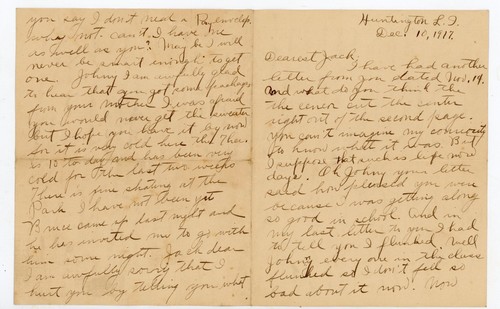 Huntington L.I.
Dec. 10, 1917.
Dearest Jack:
I have had another
letter from you dated Nov. 19.
And what do you think the
the censor cut the center
right out of the second page.
You can't imagine my curiosity
to know what it was. But
I suppose that such is life now
days. Oh Johny your letter
said how pleased you were
because I was getting along
so good in school. And in
my last letter to you I had
to tell you I flunked. Well
Johny every one in the class
flunked so I don't feel so
bad about it now. Now
you say I don't need a envelop.
why not. can't I have one
as well as you? May be I will
never be smart enough to get
one. Johny I am awfully glad
to hear that you got some packages
from your mother I was afraid
you would never get the sweater
But I hope you have it by now
for it is very cold here the Ther.
is 10 to day and has been very
cold for the last two weeks
There is fine skating at the
Park I have not been yet
Bruce came up last night and
he has invited me to go with
him some night. Jack dear
I am awfully sorry that I
hurt you by telling you what